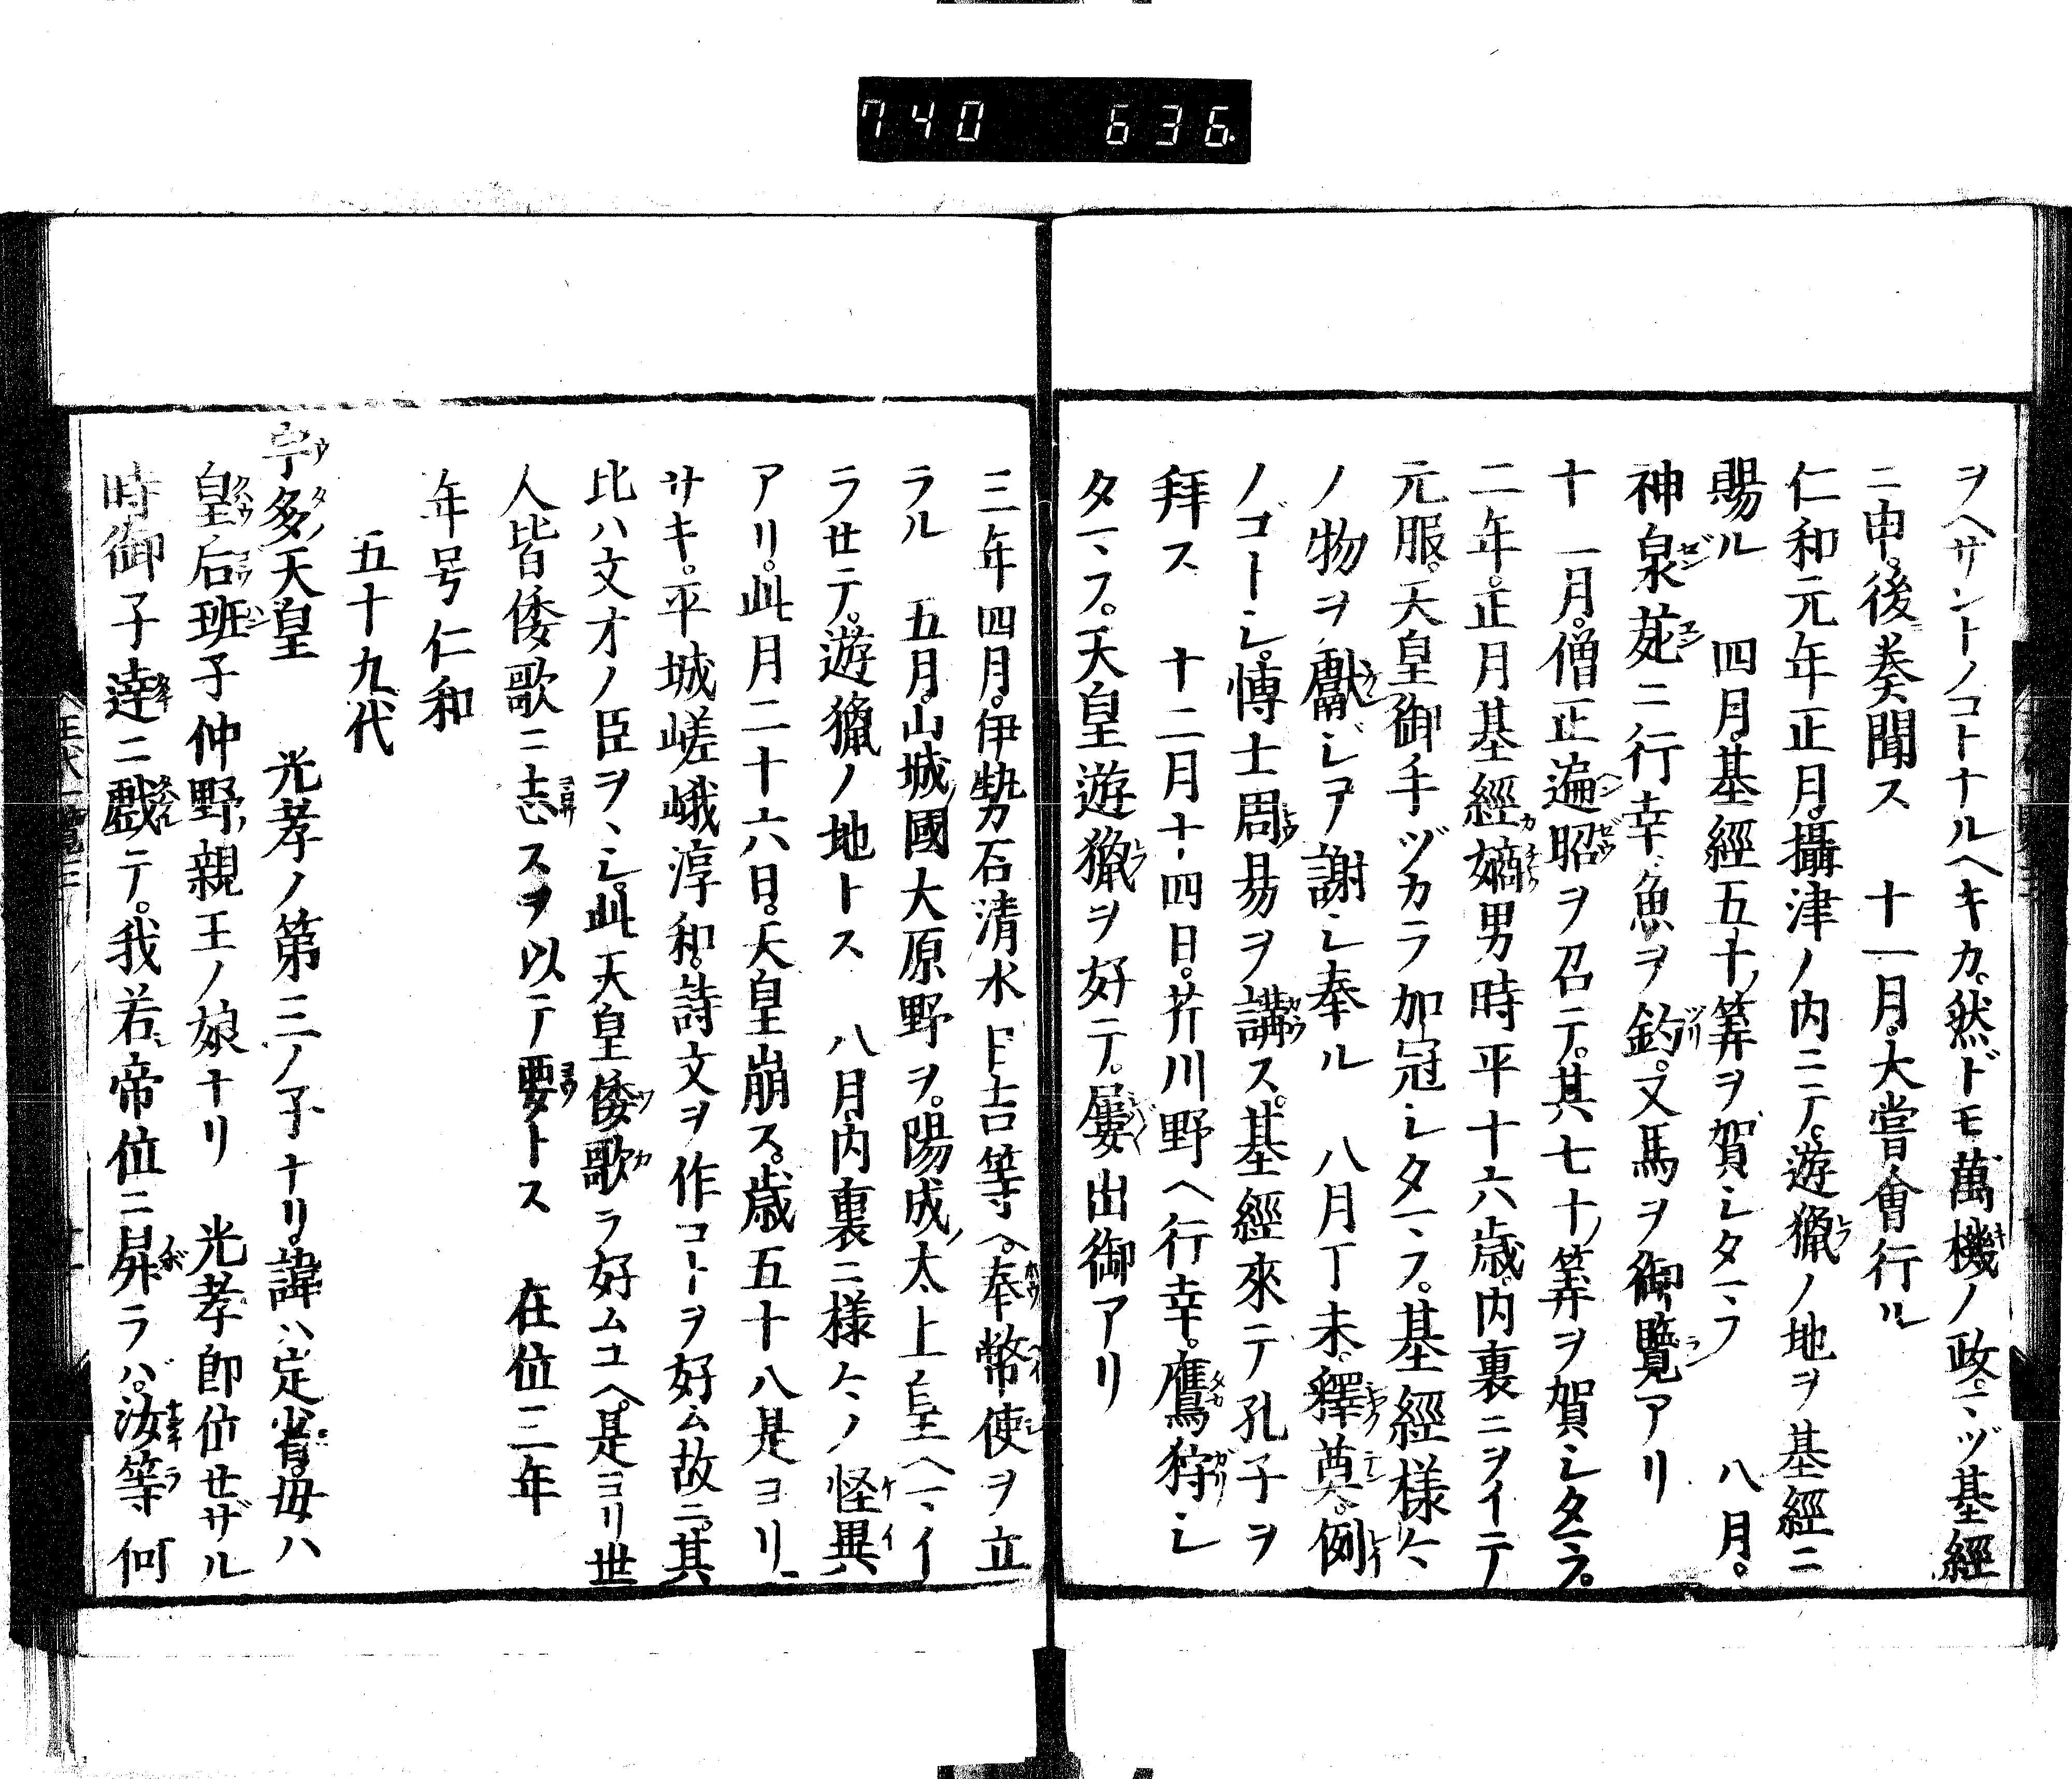 740 636.
ヲヘサントノコトナルヘキカ。然ドモ萬機ノ政。マヅ基經
ニ申。後奏聞ス　十一月。大嘗會行ル
仁和元年正月。攝津ノ内ニテ。遊獵ノ地ヲ基經ニ
賜ル　四月。基經五十ノ筭ヲ賀シタマフ　八月。
神泉苑ニ行幸。魚ヲ釣。又馬ヲ御覽アリ
十一月。僧正遍昭ヲ召テ。其七十ノ筭ヲ賀シタマフ。
二年。正月基經嫡男時平十六歳。内裏ニヲイテ
元服。天皇御手ヅカラ加冠シタマフ。基經様々
ノ物ヲ獻ジテ謝シ奉ル　八月丁未。釋奠。例
ノゴトシ。博士周易ヲ講ス。基經來テ孔子ヲ
拜ス　十二月十四日。芹川野ヘ行幸。鷹狩シ
タマフ。天皇遊獵ヲ好テ。屢出御アリ
三年四月。伊勢石清水日吉等ヘ。奉幣使ヲ立
ラル　五月。山城ノ國大原野ヲ。陽成ノ太上皇ヘマイ
ラセテ。遊獵ノ地トス　八月。内裏ニ様々ノ怪異
アリ。此月二十六日。天皇崩ス。歳五十八是ヨリ
サキ。平城嵯峨淳和。詩文ヲ作コトヲ好ム故ニ。其
比ハ文オノ臣ヲヽシ。此天皇倭歌ヲ好ムユヘ。是ヨリ世
人皆倭歌ニ志スヲ以テ要トス　在位三年
年号仁和
五十九代
宇多ノ天皇　光孝ノ第三ノ子ナリ。諱ハ定省。母ハ
皇后班子仲野ノ親王ノ娘ナリ　光孝即位セザル
時御子達ニ戯テ。我若帝位ニ昇ラバ。汝等何